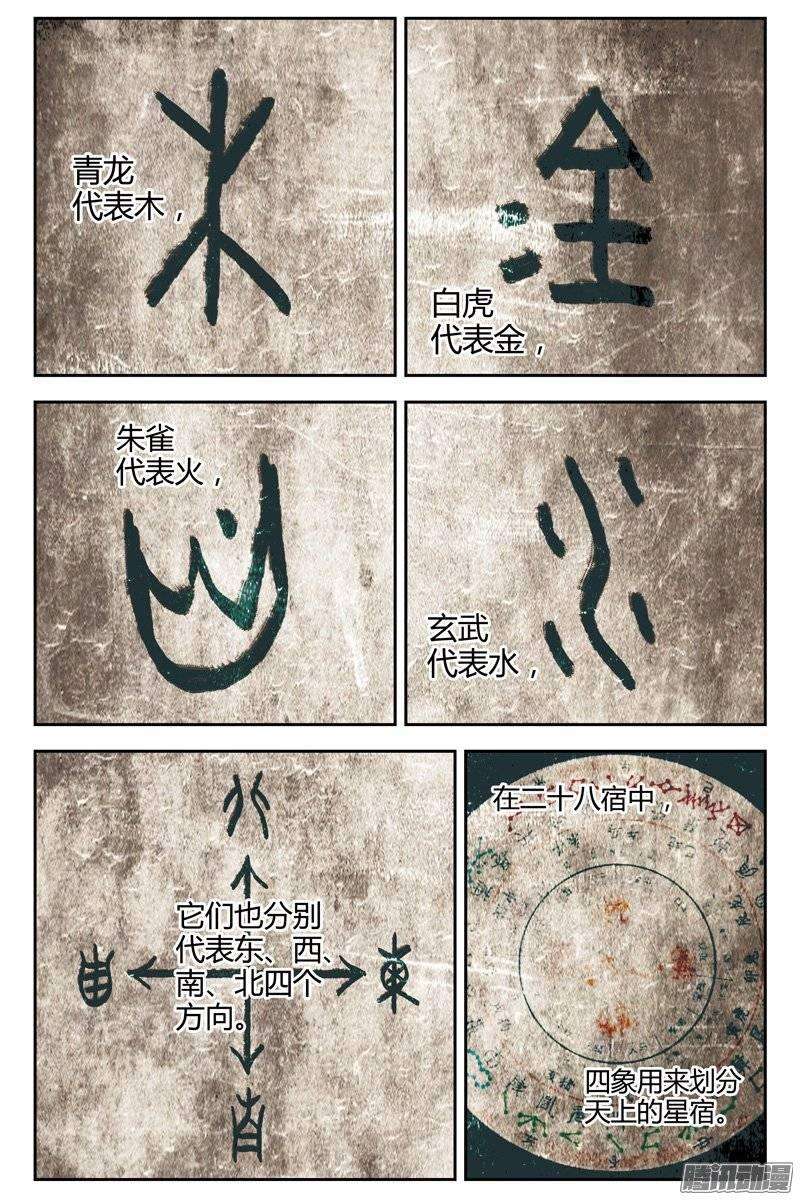 青龙
代表木，
白虎
代表金，
朱雀
代表火，
玄武
代表水，
它们也分别
代表东、西、
南、北四个
方向。
在二十八宿中，
四象用来划分
天上的星宿。
腾讯动漫